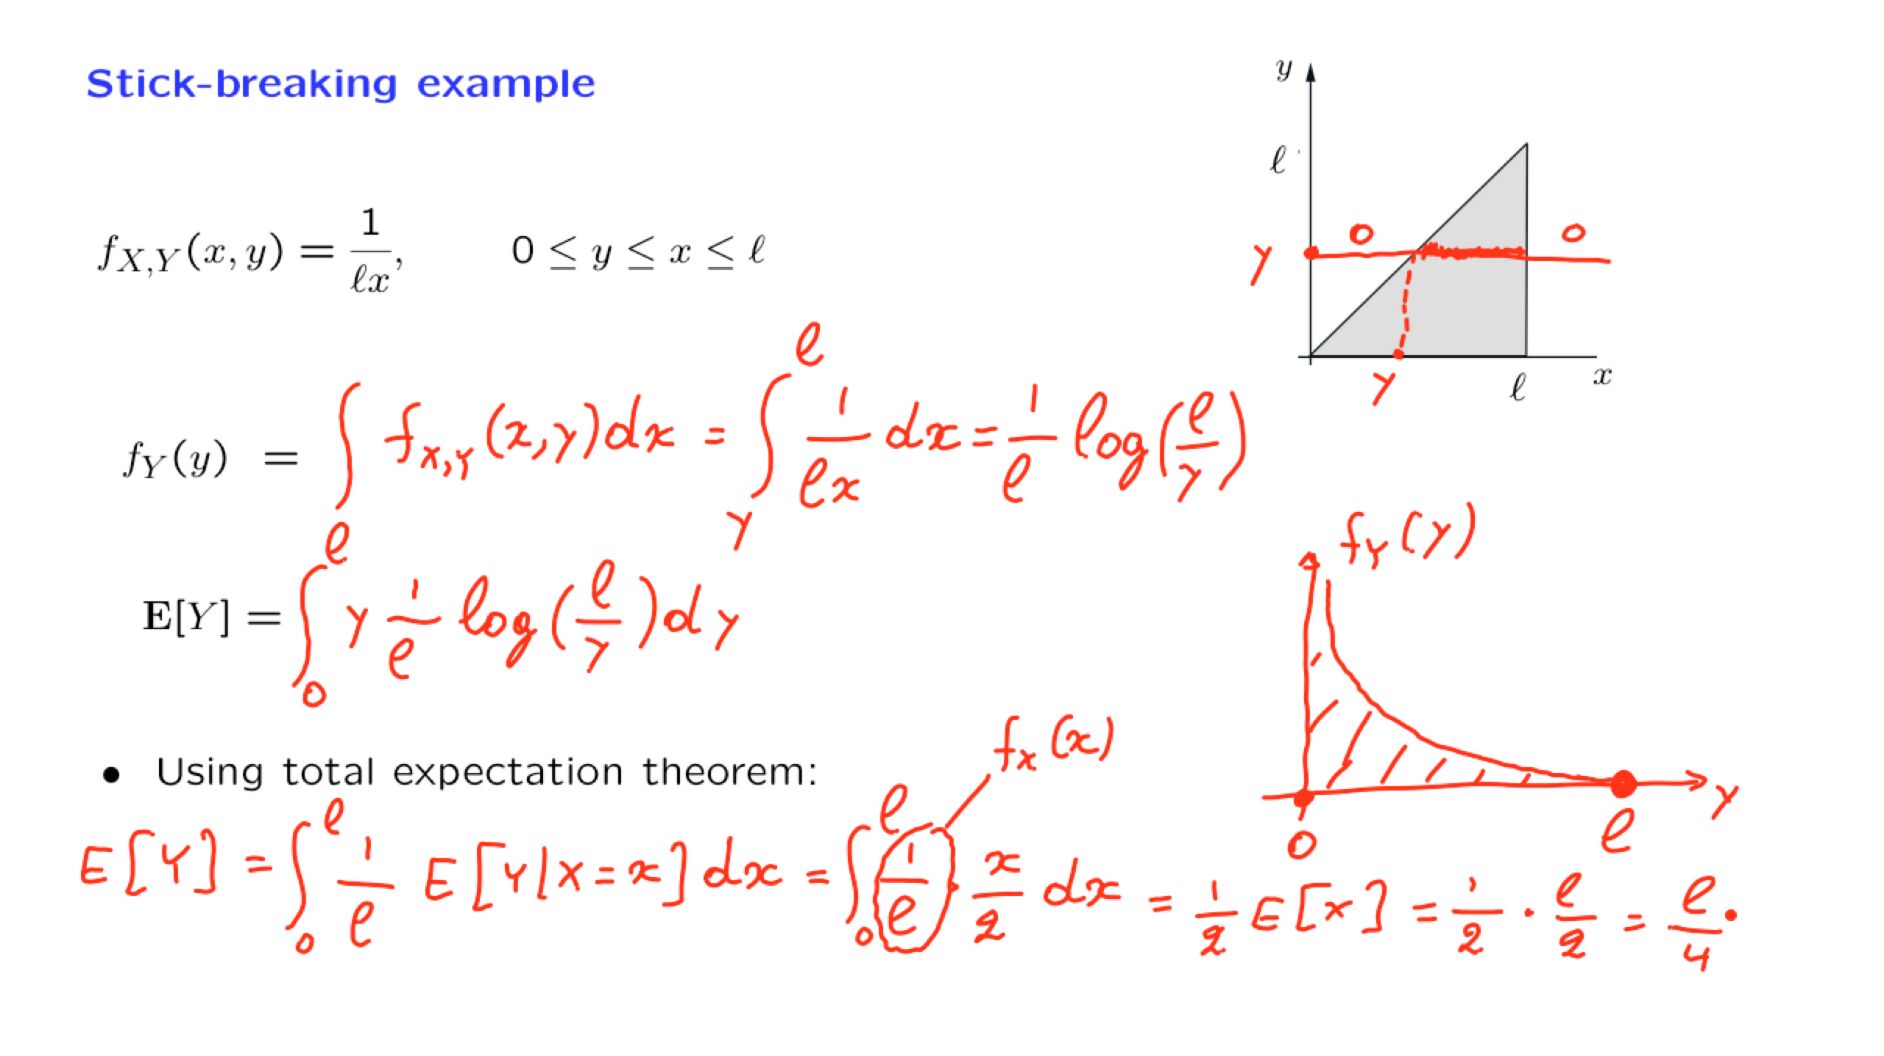 Stick-breaking example
f_{X,Y}(x, y) = \frac{1}{ℓx}, 0 ≤ y ≤ x ≤ ℓ
y
ℓ
y 0 0
y ℓ x
f_Y(y) = ∫ f_{X,Y}(x,y)dx = ∫_y^ℓ \frac{1}{ℓx} dx = \frac{1}{ℓ} log(\frac{ℓ}{y})
E[Y] = ∫_0^ℓ y \frac{1}{ℓ} log(\frac{ℓ}{y}) dy
f_Y(y)
y
0 ℓ
• Using total expectation theorem:
f_X(x)
E[Y] = ∫_0^ℓ \frac{1}{ℓ} E[Y|X=x] dx = ∫_0^ℓ \frac{1}{ℓ} · \frac{x}{2} dx = \frac{1}{2} E[X] = \frac{1}{2} · \frac{ℓ}{2} = \frac{ℓ}{4}.